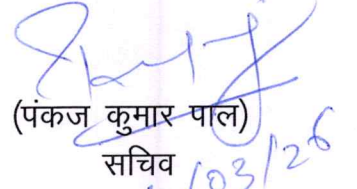 (पंकज कुमार पाल)
सचिव
/03/26